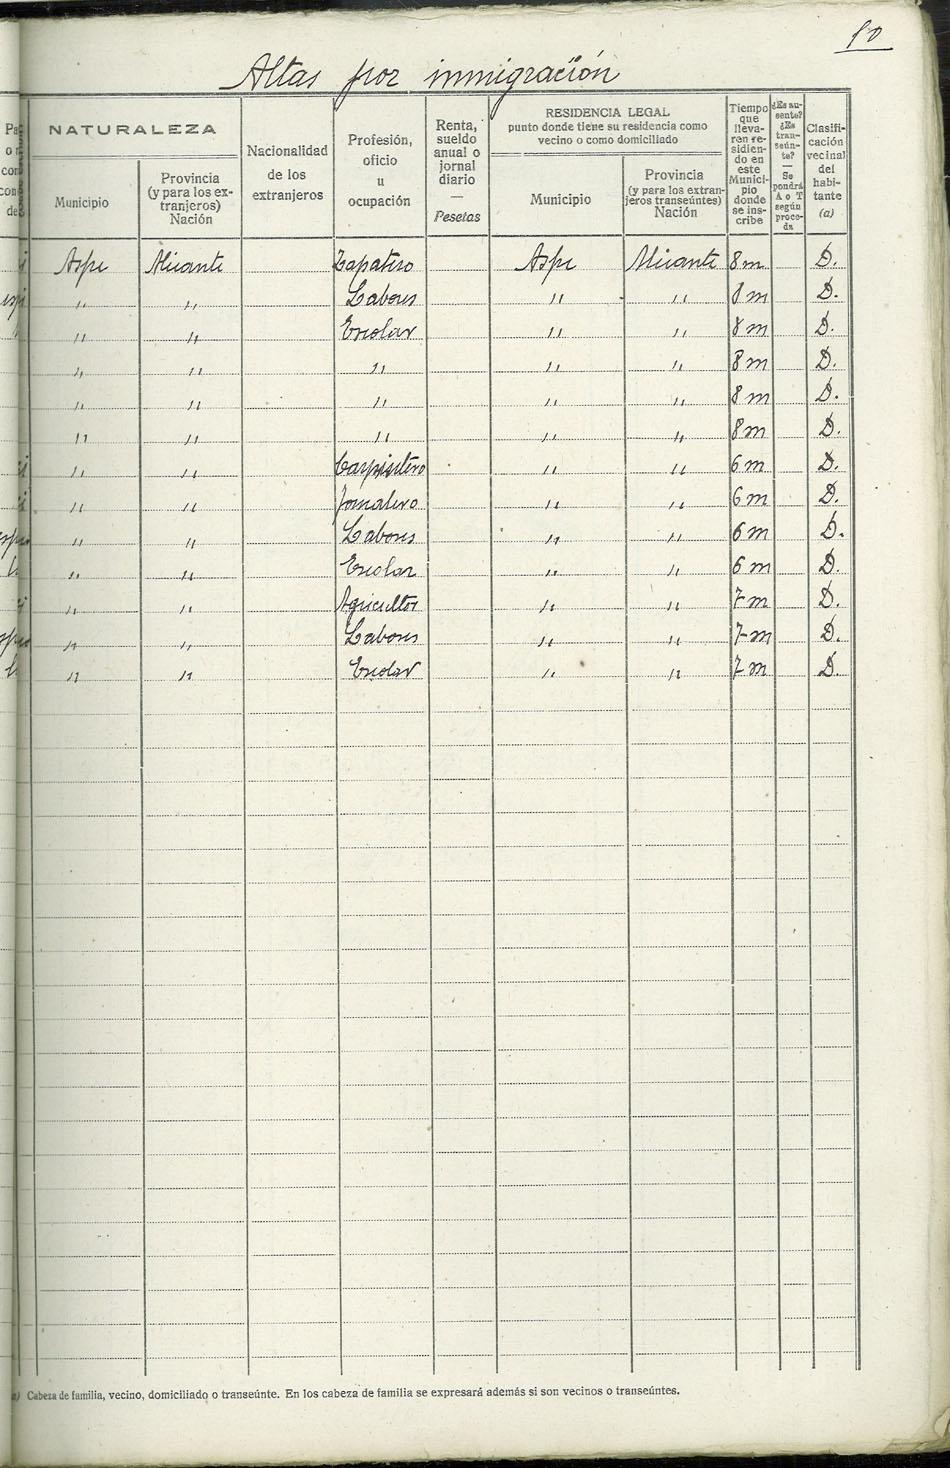 10
Altas por inmigración
NATURALEZA
Municipio
Provincia (y para los extranjeros) Nación
Nacionalidad de los extranjeros
Profesión, oficio u ocupación
Renta, sueldo anual o jornal diario — Pesetas
RESIDENCIA LEGAL
punto donde tiene su residencia como vecino o como domiciliado
Municipio
Provincia (y para los extranjeros transeúntes) Nación
Tiempo que llevaran residiendo en este Municipio donde se inscribe
¿Es ausente? ¿Es transeúnte? — Se pondrá A o T según proceda
Clasificación vecinal del habitante (a)
Aspe Alicante Zapatero Aspe Alicante 8 m D.
" " Labores " " 8 m D.
" " Escolar " " 8 m D.
" " " " " 8 m D.
" " " " " 8 m D.
" " " " " 8 m D.
" " Carpintero " " 6 m D.
" " Jornalero " " 6 m D.
" " Labores " " 6 m D.
" " Escolar " " 6 m D.
" " Agricultor " " 7 m D.
" " Labores " " 7 m D.
" " Escolar " " 7 m D.
Cabeza de familia, vecino, domiciliado o transeúnte. En los cabeza de familia se expresará además si son vecinos o transeúntes.